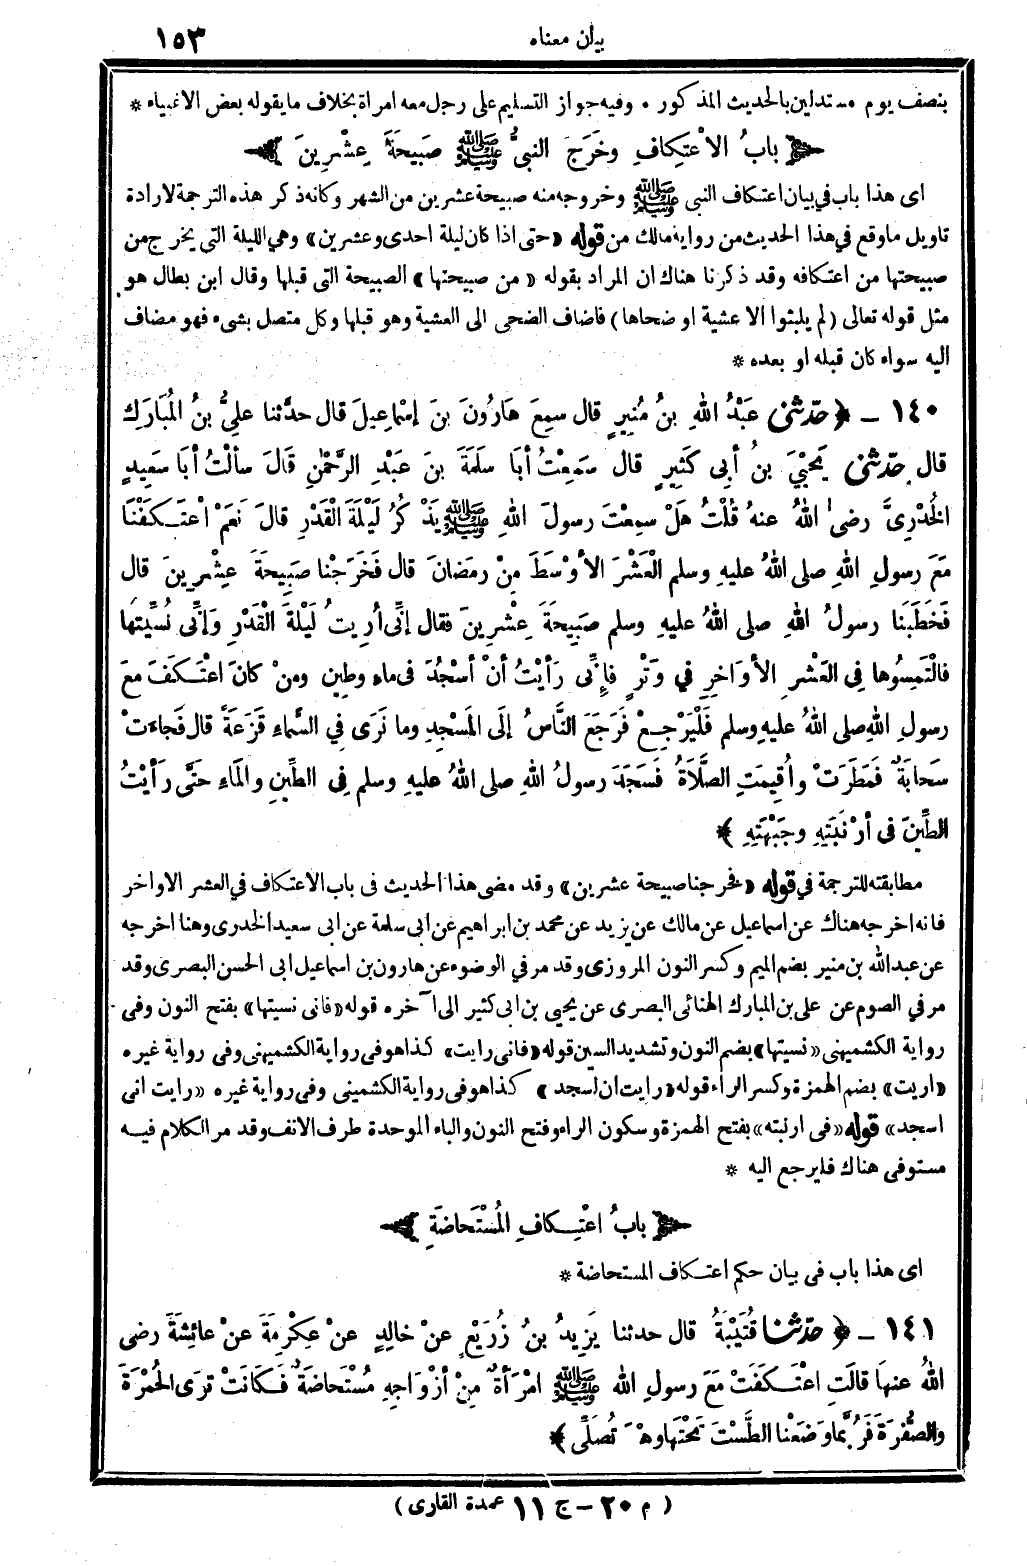 بيان معناه ١٥٣
بنصف يوم مستدلين بالحديث المذكور ٠ وفيه جواز التسليم على رجل معه امرأة بخلاف ما يقوله بعض الاغبياء *
﴿ بابُ الاعْتِكافِ وخَرَجَ النبيُّ ﷺ صَبِيحَةَ عِشْرِينَ ﴾
اى هذا باب في بيان اعتكاف النبى ﷺ وخروجه منه صبيحة عشرين من الشهر وكانه ذكر هذه الترجمة لارادة
تاويل ماوقع في هذا الحديث من رواية مالك من قوله «حتى اذا كان ليلة احدى وعشرين» وهي الليلة التى يخرج من
صبيحتها من اعتكافه وقد ذكرنا هناك ان المراد بقوله «من صبيحتها» الصبيحة التى قبلها وقال ابن بطال هو
مثل قوله تعالى (لم يلبثوا الا عشية او ضحاها) فاضاف الضحى الى العشية وهو قبلها وكل متصل بشىء فهو مضاف
اليه سواء كان قبله او بعده *
١٤٠ - ﴿ حدّثنى عَبْدُ اللهِ بنُ مُنِيرٍ قال سمِعَ هَارُونَ بنَ إسْماعِيلَ قال حدَّثنا علِيُّ بنُ المُبَارَكِ
قال حدّثنى يَحْيَى بنُ أبى كَثِيرٍ قال سَمِعْتُ أبَا سَلَمَةَ بنَ عَبْدِ الرَّحْمٰنِ قَالَ سألْتُ أبَا سَعِيدٍ
الخُدْرِىَّ رضىَ اللهُ عنهُ قُلْتُ هَلْ سمِعْتَ رسولَ اللهِ ﷺ يَذْكُرُ لَيْلَةَ القَدْرِ قالَ نَعَمْ اعْتَكَفْنَا
مَعَ رسولِ اللهِ صلى اللهُ عليهِ وسلم الْعَشْرَ الأوْسَطَ مِنْ رمَضَانَ قال فَخَرَجْنا صَبِيحَةَ عِشْرِينَ قال
فَخَطَبَنَا رسولُ اللهِ صلى اللهُ عليهِ وسلم صَبِيحَةَ عِشْرِينَ فقال إنِّى أُرِيتُ لَيْلَةَ الْقَدْرِ وَإنِّى نُسِّيتُها
فالْتَمِسُوها فِى العَشْرِ الأوَاخِرِ فِي وَتْرٍ فإنِّى رَأيْتُ أنْ أسْجُدَ فى ماءٍ وطِينٍ ومنْ كانَ اعْتَكَفَ معَ
رسولِ اللهِ صلى اللهُ عليهِ وسلم فَلْيَرْجِعْ فَرَجَعَ النَّاسُ إلَى المَسْجِدِ وما نَرَى فِي السَّماءِ قَزَعَةً قال فَجاءَتْ
سَحابَةٌ فَمَطَرَتْ وأُقِيمَتِ الصَّلَاةُ فَسَجَدَ رسولُ اللهِ صلى اللهُ عليهِ وسلم فِى الطِّينِ والْمَاءِ حَتَّى رَأيْتُ
الطِّينَ فى أرْنَبَتِهِ وجَبْهَتِهِ ﴾ *
مطابقته للترجمة في قوله «فخرجنا صبيحة عشرين» وقد مضى هذا الحديث فى باب الاعتكاف في العشر الاواخر
فانه اخرجه هناك عن اسماعيل عن مالك عن يزيد عن محمد بن ابراهيم عن ابى سلمة عن ابى سعيد الخدرى وهنا اخرجه
عن عبد الله بن منير بضم الميم وكسر النون المروزى وقد مر في الوضوء عن هارون بن اسماعيل ابى الحسن البصرى وقد
مر في الصوم عن على بن المبارك الهنائى البصرى عن يحيى بن ابى كثير الى آخره قوله «فانى نسيتها» بفتح النون وفى
رواية الكشميهنى «نسيتها» بضم النون وتشديد السين قوله «فانى رايت» كذا هو فى رواية الكشميهنى وفى رواية غيره
«اريت» بضم الهمزة وكسر الراء قوله «رايت ان اسجد» كذا هو فى رواية الكشميني وفى رواية غيره «رايت انى
اسجد» قوله «فى ارنبته» بفتح الهمزة وسكون الراء وفتح النون والباء الموحدة طرف الانف وقد مر الكلام فيه
مستوفى هناك فليرجع اليه *
﴿ بابُ اعْتِكافِ المُسْتَحاضَةِ ﴾
اى هذا باب فى بيان حكم اعتكاف المستحاضة *
١٤١ - ﴿ حدّثنا قُتَيْبَةُ قال حدثنا يَزِيدُ بنُ زُرَيْعٍ عنْ خالِدٍ عنْ عِكْرِمَةَ عنْ عائِشَةَ رضى
اللهُ عنهَا قالَتِ اعْتَكَفَتْ مَعَ رسولِ اللهِ ﷺ امْرَأةٌ مِنْ أزْوَاجِهِ مُسْتَحاضَةٌ فَكَانَتْ ترَى الحُمْرَةَ
والصُّفْرَةَ فَرُبَّما وَضَعْنا الطَّسْتَ تَحْتَها وهْىَ تُصَلِّى ﴾ *
( م ٢٠ - ج ١١ عمدة القارى )